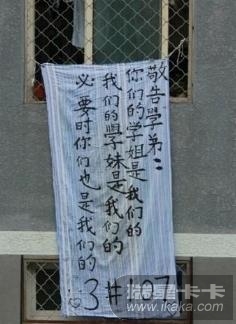 敬告學弟：
你们的学姐是我们的
我们的學妹是我们的
必要时你们也是我们的
3#307
www.ikaka.com